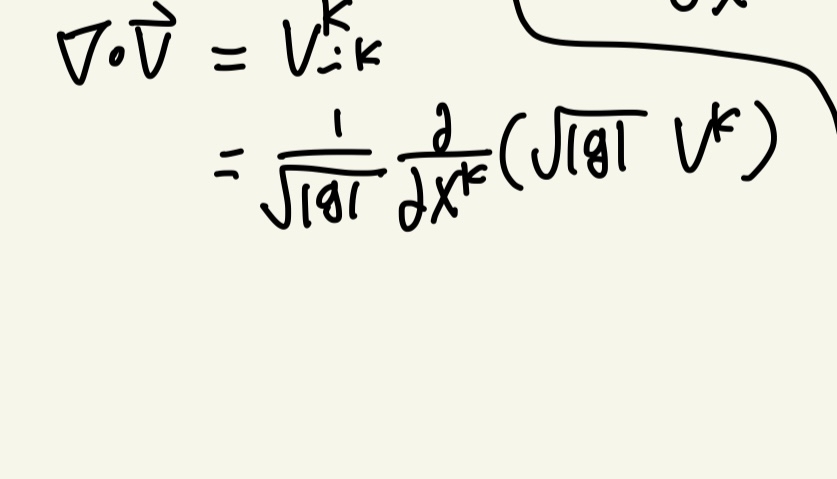 ∇∘V⃗ = V^k_{;k}
= 1/√|g| ∂/∂x^k (√|g| V^k)